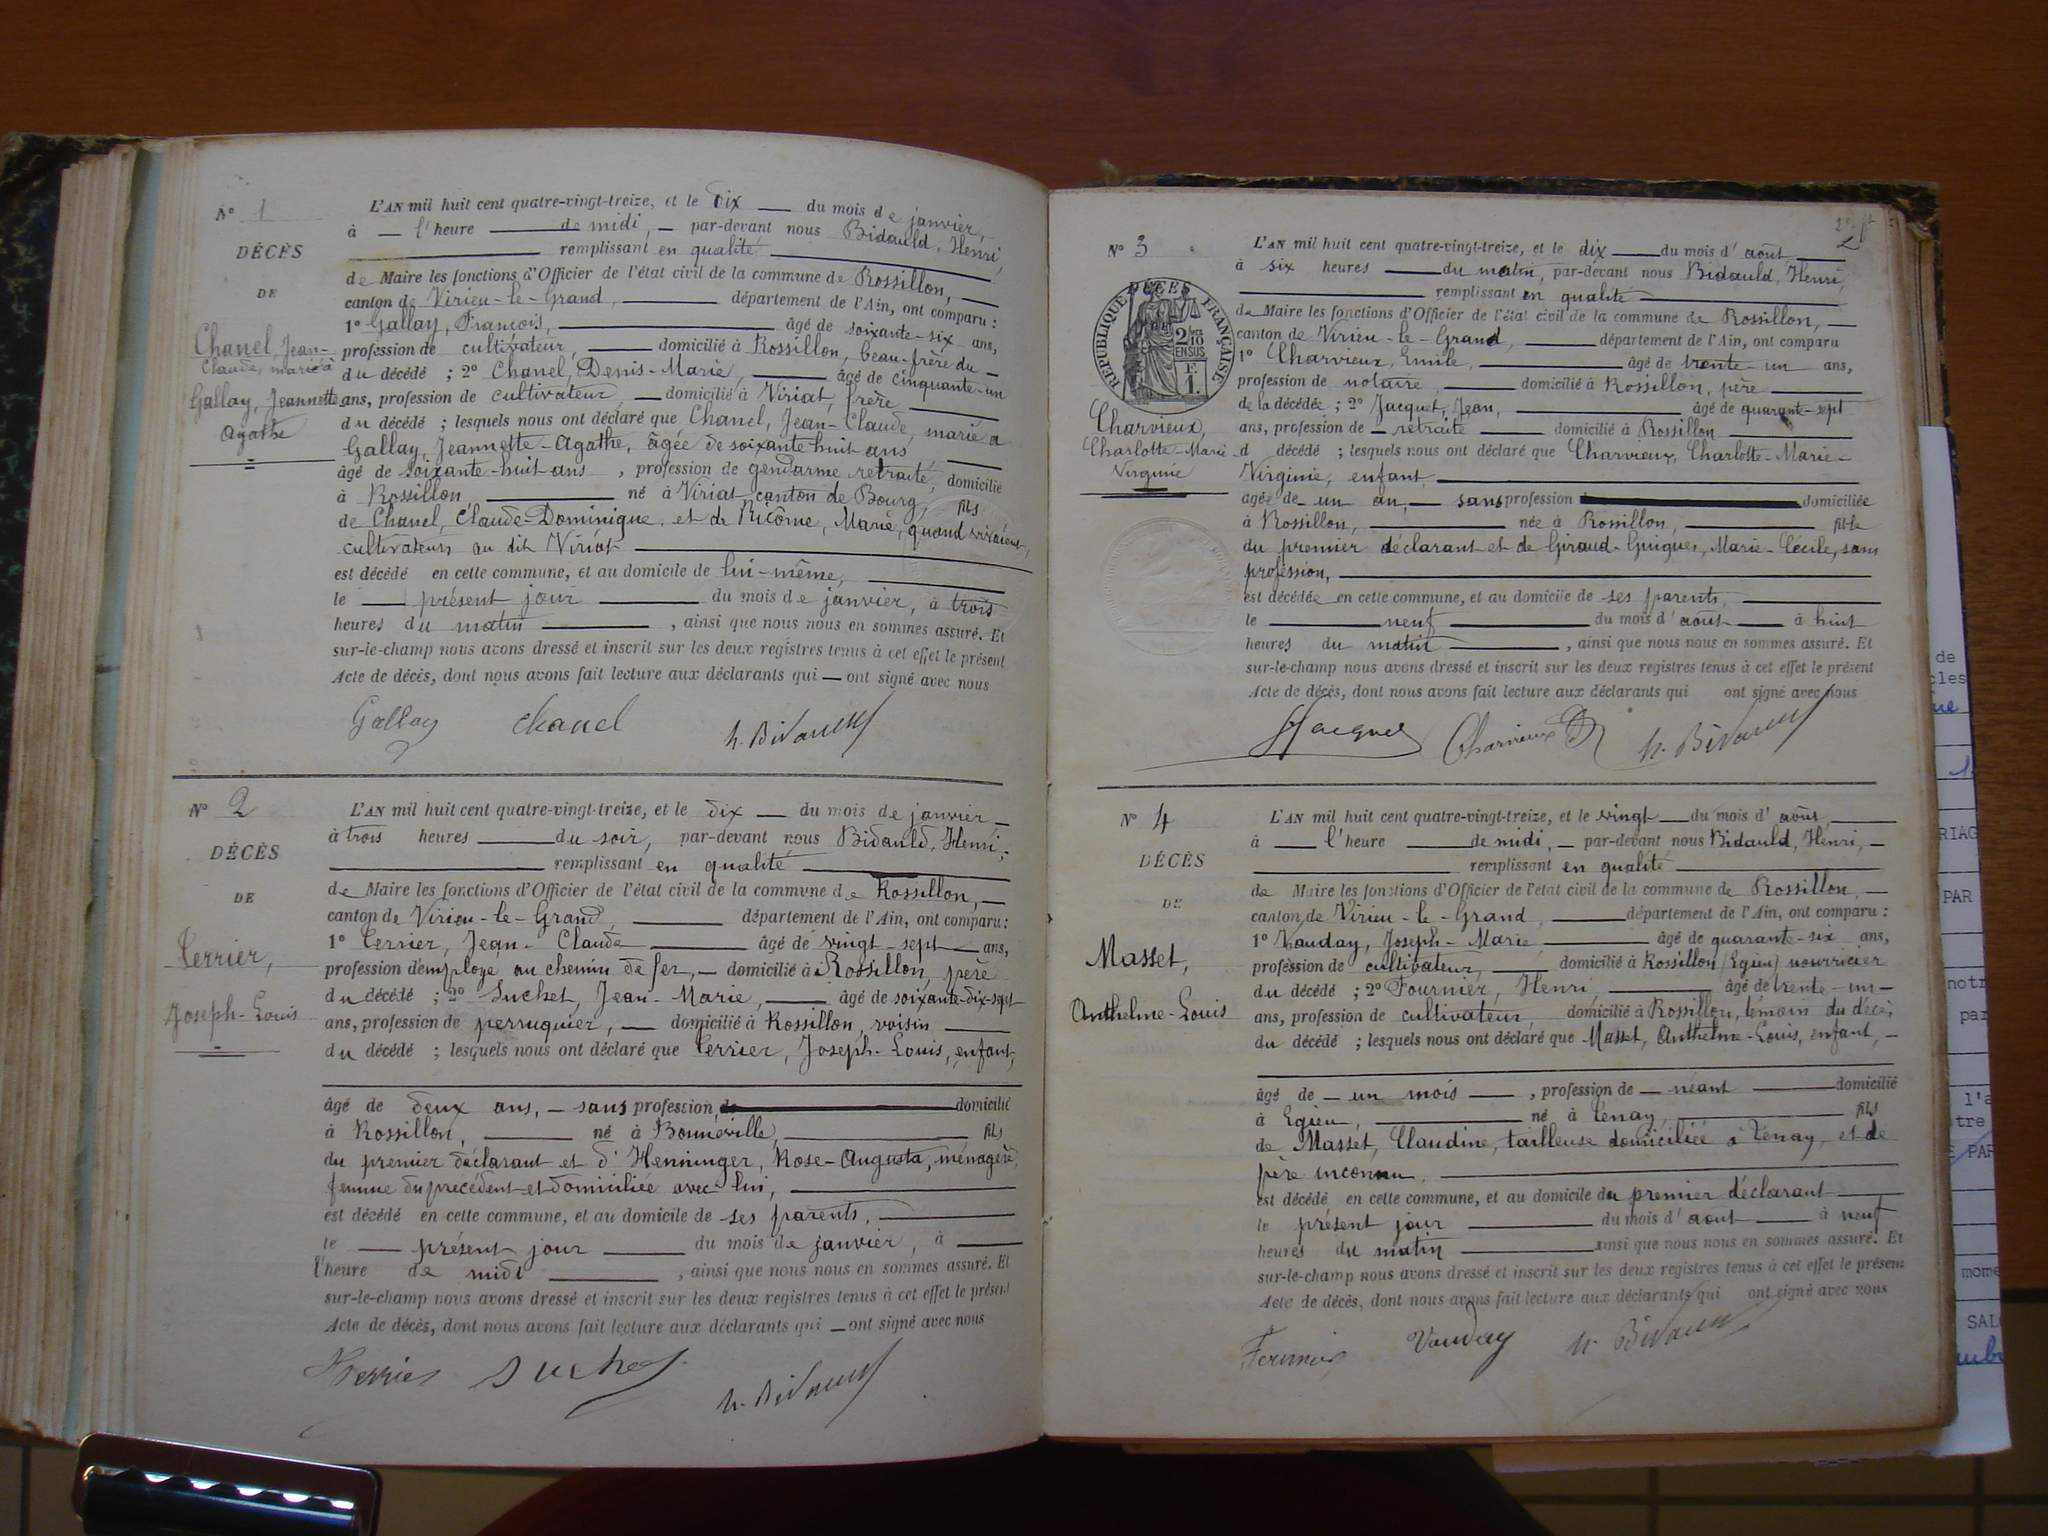 N° 1
DÉCÈS
DE
Chanel, Jean-
Claude, marié à
Gallay, Jeannette
Agathe
L'AN mil huit cent quatre-vingt-treize, et le dix du mois de janvier,
à l'heure de midi, par-devant nous Bidauld, Henri,
remplissant en qualité
de Maire les fonctions d'Officier de l'état civil de la commune de Rossillon,
canton de Virieu-le-Grand, département de l'Ain, ont comparu :
1° Gallay, François, âgé de soixante-six ans,
profession de cultivateur, domicilié à Rossillon, beau-frère du
du décédé ; 2° Chanel, Denis-Marie, âgé de cinquante-un
ans, profession de cultivateur, domicilié à Viriat, frère
du décédé ; lesquels nous ont déclaré que Chanel, Jean-Claude, marié à
Gallay, Jeannette-Agathe, âgée de soixante huit ans
âgé de soixante-huit ans , profession de gendarme retraité, domicilié
à Rossillon, né à Viriat canton de Bourg, fils
de Chanel, Claude-Dominique, et de Ricôme, Marie, quand vivaient,
cultivateurs au dit Viriat
est décédé en cette commune, et au domicile de lui-même,
le présent jour du mois de janvier, à trois
heures du matin , ainsi que nous nous en sommes assuré. Et
sur-le-champ nous avons dressé et inscrit sur les deux registres tenus à cet effet le présent
Acte de décès, dont nous avons fait lecture aux déclarants qui ont signé avec nous
Gallay Chanel h. Bidauld
N° 2
DÉCÈS
DE
Terrier,
Joseph-Louis
L'AN mil huit cent quatre-vingt-treize, et le dix du mois de janvier
à trois heures du soir, par-devant nous Bidauld, Henri,
remplissant en qualité
de Maire les fonctions d'Officier de l'état civil de la commune de Rossillon,
canton de Virieu-le-Grand, département de l'Ain, ont comparu :
1° Terrier, Jean-Claude âgé de vingt-sept ans,
profession d'employé au chemin de fer, domicilié à Rossillon, père
du décédé ; 2° Suchet, Jean-Marie, âgé de soixante-dix-sept
ans, profession de perruquier, domicilié à Rossillon, voisin
du décédé ; lesquels nous ont déclaré que Terrier, Joseph-Louis, enfant,
âgé de deux ans, sans profession, de domicilié
à Rossillon, né à Bonneville, fils
du premier déclarant et d'Henninger, Rose-Augusta, ménagère,
femme du précédent et domiciliée avec lui,
est décédé en cette commune, et au domicile de ses parents,
le présent jour du mois de janvier, à
l'heure de midi , ainsi que nous nous en sommes assuré. Et
sur-le-champ nous avons dressé et inscrit sur les deux registres tenus à cet effet le présent
Acte de décès, dont nous avons fait lecture aux déclarants qui ont signé avec nous
Terrier Suchet h. Bidauld
N° 3
DÉCÈS
RÉPUBLIQUE FRANÇAISE
2/10
EN SUS
F.
1.
Charvieux,
Charlotte-Marie
Virginie
L'AN mil huit cent quatre-vingt-treize, et le dix du mois d'août,
à six heures du matin, par-devant nous Bidauld, Henri,
remplissant en qualité
de Maire les fonctions d'Officier de l'état civil de la commune de Rossillon,
canton de Virieu-le-Grand, département de l'Ain, ont comparu
1° Charvieux, Emile, âgé de trente-un ans,
profession de notaire, domicilié à Rossillon, père
de la décédée ; 2° Jacquet, Jean, âgé de quarante-sept
ans, profession de retraité domicilié à Rossillon
d décédé ; lesquels nous ont déclaré que Charvieux, Charlotte-Marie-
Virginie, enfant,
agée de un an, sans profession domiciliée
à Rossillon, née à Rossillon, fille
du premier déclarant et de Giraud-Guigues, Marie-Cécile, sans
profession,
est décédée en cette commune, et au domicile de ses parents,
le neuf du mois d'août à huit
heures du matin , ainsi que nous nous en sommes assuré. Et
sur-le-champ nous avons dressé et inscrit sur les deux registres tenus à cet effet le présent
Acte de décès, dont nous avons fait lecture aux déclarants qui ont signé avec nous
Jacquet Charvieux h. Bidauld
N° 4
DÉCÈS
DE
Masset,
Anthelme-Louis
L'AN mil huit cent quatre-vingt-treize, et le vingt du mois d'août,
à l'heure de midi, par-devant nous Bidauld, Henri,
remplissant en qualité
de Maire les fonctions d'Officier de l'état civil de la commune de Rossillon,
canton de Virieu-le-Grand, département de l'Ain, ont comparu :
1° Vauday, Joseph-Marie, âgé de quarante-six ans,
profession de cultivateur, domicilié à Rossillon (Egieu) nourricier
du décédé ; 2° Fournier, Henri, âgé de trente-un
ans, profession de cultivateur domicilié à Rossillon, témoin du décès
du décédé ; lesquels nous ont déclaré que Masset, Anthelme-Louis, enfant,
âgé de un mois , profession de néant domicilié
à Egieu, né à Tenay, fils
de Masset, Claudine, tailleuse domiciliée à Tenay, et de
père inconnu.
est décédé en cette commune, et au domicile du premier déclarant
le présent jour du mois d'aout à neuf
heures du matin ainsi que nous nous en sommes assuré. Et
sur-le-champ nous avons dressé et inscrit sur les deux registres tenus à cet effet le présent
Acte de décès, dont nous avons fait lecture aux déclarants qui ont signé avec nous
Fournier Vauday h. Bidauld